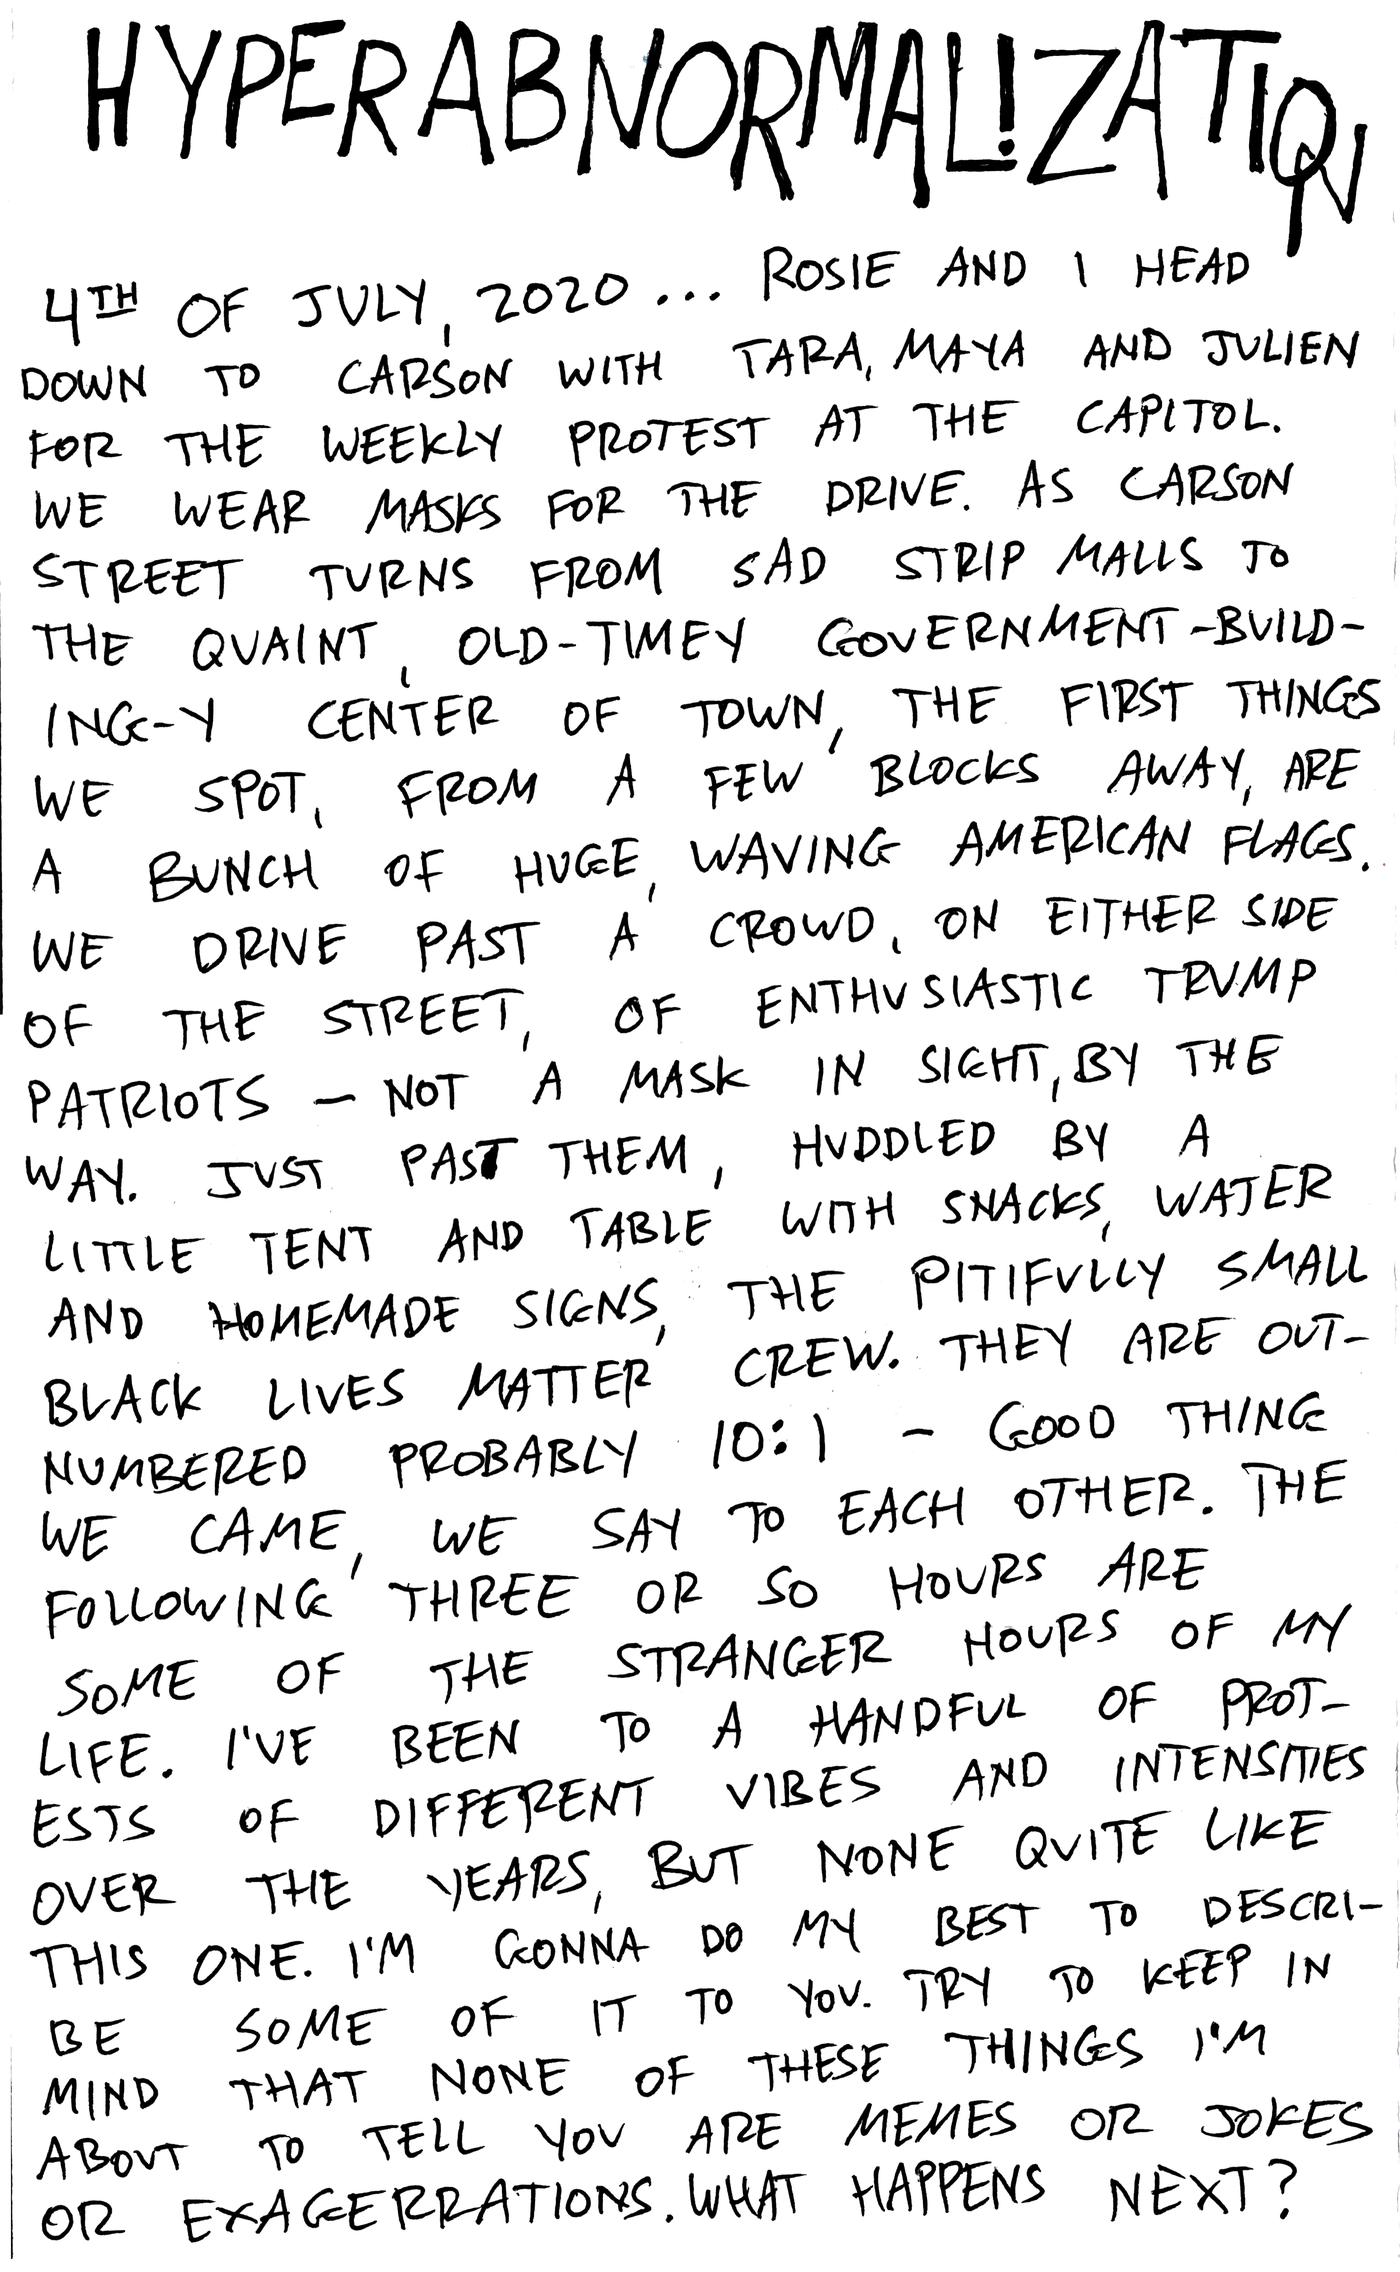 HYPERABNORMAL!ZATION
4TH OF JULY, 2020... ROSIE AND I HEAD
DOWN TO CARSON WITH TARA, MAYA AND JULIEN
FOR THE WEEKLY PROTEST AT THE CAPITOL.
WE WEAR MASKS FOR THE DRIVE. AS CARSON
STREET TURNS FROM SAD STRIP MALLS TO
THE QUAINT, OLD-TIMEY GOVERNMENT-BUILD-
ING-Y CENTER OF TOWN, THE FIRST THINGS
WE SPOT, FROM A FEW BLOCKS AWAY, ARE
A BUNCH OF HUGE, WAVING AMERICAN FLAGS.
WE DRIVE PAST A CROWD, ON EITHER SIDE
OF THE STREET, OF ENTHUSIASTIC TRUMP
PATRIOTS — NOT A MASK IN SIGHT, BY THE
WAY. JUST PAST THEM, HUDDLED BY A
LITTLE TENT AND TABLE WITH SNACKS, WATER
AND HOMEMADE SIGNS, THE PITIFULLY SMALL
BLACK LIVES MATTER CREW. THEY ARE OUT-
NUMBERED PROBABLY 10:1 - GOOD THING
WE CAME, WE SAY TO EACH OTHER. THE
FOLLOWING THREE OR SO HOURS ARE
SOME OF THE STRANGER HOURS OF MY
LIFE. I'VE BEEN TO A HANDFUL OF PROT-
ESTS OF DIFFERENT VIBES AND INTENSITIES
OVER THE YEARS, BUT NONE QUITE LIKE
THIS ONE. I'M GONNA DO MY BEST TO DESCRI-
BE SOME OF IT TO YOU. TRY TO KEEP IN
MIND THAT NONE OF THESE THINGS I'M
ABOUT TO TELL YOU ARE MEMES OR JOKES
OR EXAGERRATIONS. WHAT HAPPENS NEXT?